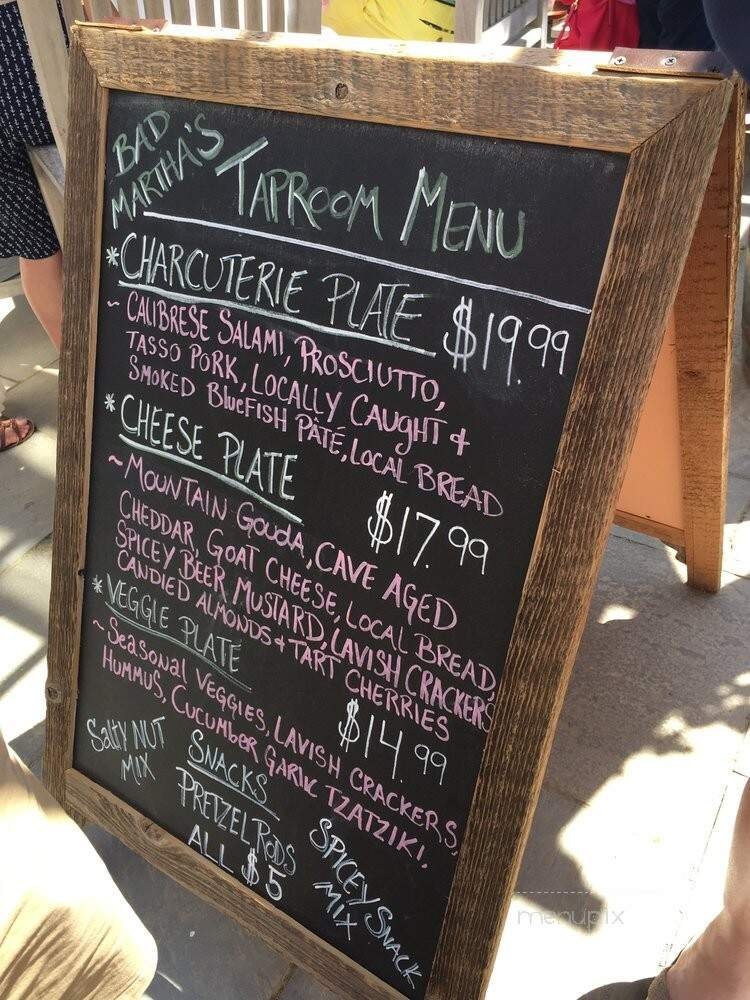 BAD
MARTHA'S
TAPROOM MENU
*CHARCUTERIE PLATE $19.99
~ CALIBRESE SALAMI, PROSCIUTTO,
TASSO PORK, LOCALLY CAUGHT +
SMOKED BLUEFISH PÂTÉ, LOCAL BREAD
*CHEESE PLATE $17.99
~MOUNTAIN GOUDA, CAVE AGED
CHEDDAR, GOAT CHEESE, LOCAL BREAD,
SPICEY BEER MUSTARD, LAVISH CRACKERS
CANDIED ALMONDS + TART CHERRIES
*VEGGIE PLATE $14.99
~SEASONAL VEGGIES, LAVISH CRACKERS,
HUMMUS, CUCUMBER GARLIC TZATZIKI.
SNACKS
SALTY NUT
MIX
PRETZEL RODS
ALL $5
SPICEY SNACK
MIX
menupix